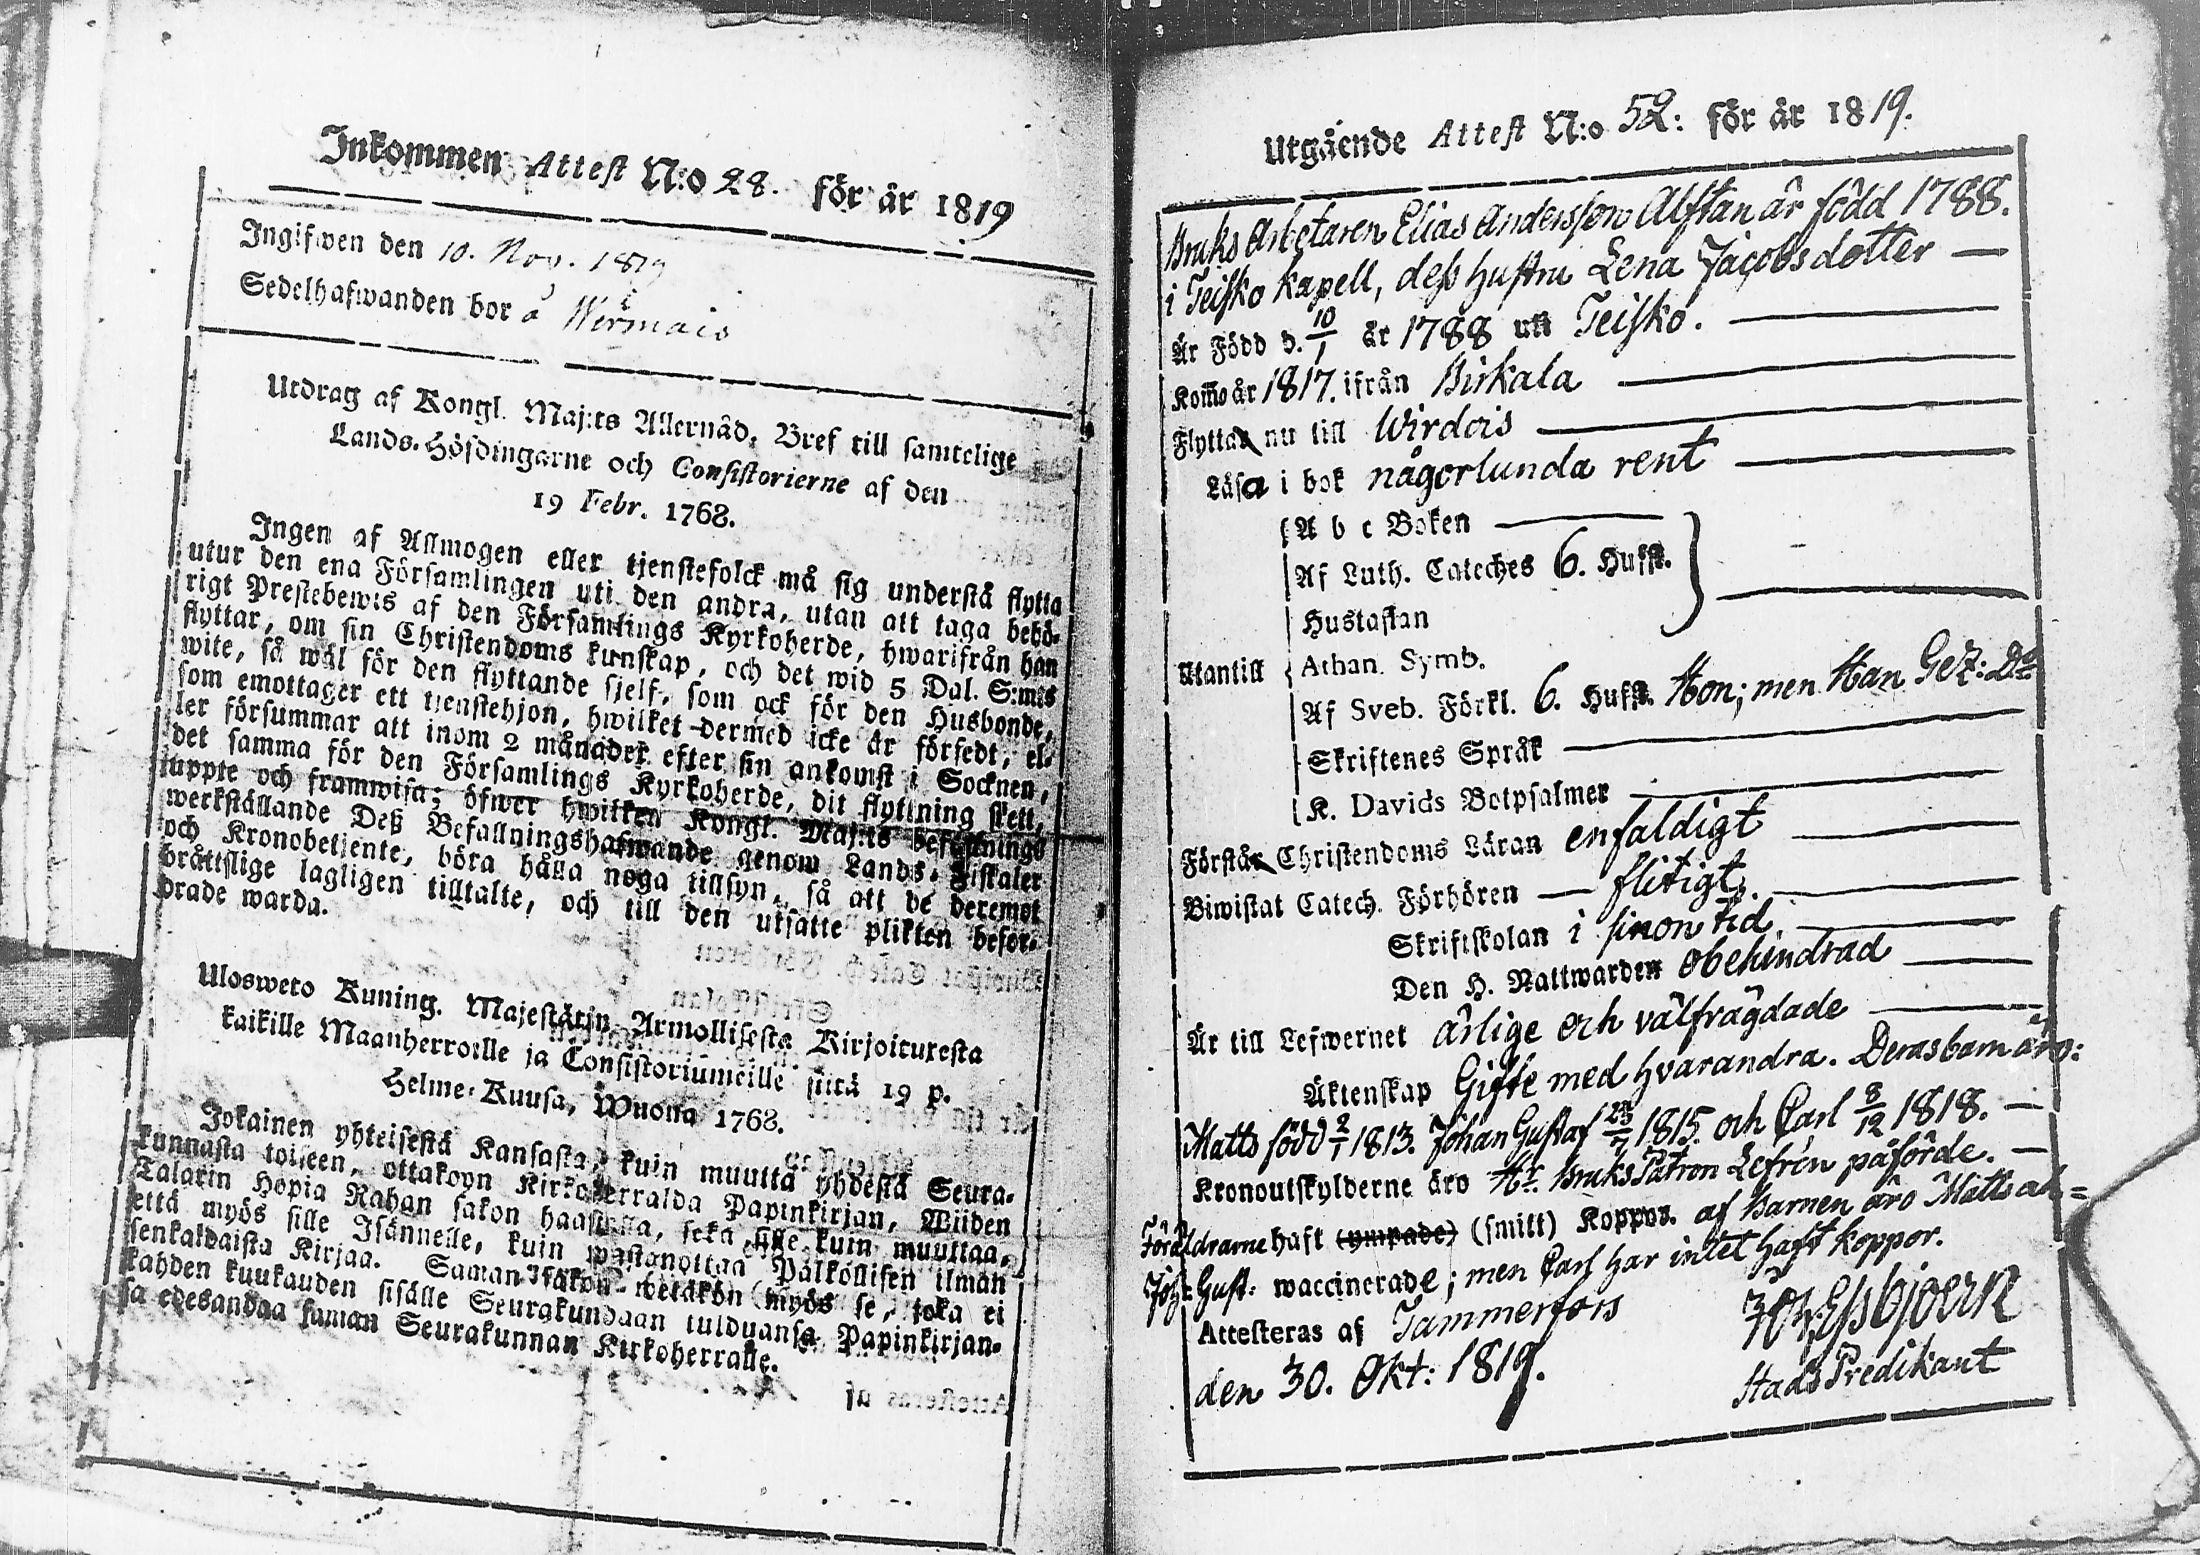 Inkommen Attest N:o 28. för år 1819
Ingifwen den 10. Nov. 1819
Sedelhafwanden bor å Wermais
Utdrag af Kongl. Maj:ts Allernåd. Bref till samtelige
Lands-Höfdingarne och Consistorierne af den
19 Febr. 1768.
Ingen af Allmogen eller tjenstefolck må sig understå flytta
utur den ena Församlingen uti den andra, utan att taga behö-
rigt Prestebewis af den Församlings Kyrkoherde, hwarifrån han
flyttar, om sin Christendoms kunskap, och det wid 5 Dal. S:mts
wite, så wäl för den flyttande sjelf, som ock för den Husbonde,
som emottager ett tjenstehjon, hwilket dermed icke är försedt, el-
ler försummar att inom 2 månader efter sin ankomst i Socknen,
det samma för den Församlings Kyrkoherde, dit flyttning skett,
uppte och framwisa; öfwer hwilken Kongl. Maj:ts befallnings
werkställande Deß Befallningshafwande genom Lands-Fiskaler
och Kronobetjente, böra hålla noga tillsyn, så att de deremot
bråttslige lagligen tilltalte, och till den utsatte plikten befor-
drade warda.
Ulosweto Kuning. Majestätin Armollisesta Kirjoituxesta
kaikille Maanherroille ja Consistoriumeille siitä 19 p.
Helme-Kuusa, Wuona 1768.
Jokainen yhteisestä Kansasta, kuin muutta yhdestä Seura-
kunnasta toiseen, ottakoon Kirkoherralda Papinkirjan, Wiiden
Talarin Hopia Rahan sakon haastolla, sekä sille kuin muuttaa,
että myös sille Isännelle, kuin wastanottaa Palkollisen ilman
senkaldaista Kirjaa. Saman sakon wetäkön myös se, joka ei
kahden kuukauden sisälle Seurakundaan tulduansa Papinkirjan-
sa edesandaa saman Seurakunnan Kirkoherralle.
Utgående Attest N:o 52: för år 1819.
Bruks Arbetaren Elias Andersson Alftan är född 1788.
i Teisko kapell, dess hustru Lena Jacobsdotter —
Är Född d. 10/1 år 1788 uti Teisko.
Kom̄o år 1817. ifrån Birkala
Flytta nu till Wirdois
Läsa i bok någorlunda rent
A b c Boken
Af Luth. Cateches 6. Hufst.
Hustaflan
Utantill Athan. Symb.
Af Sveb. Förkl. 6. Hufst. Hon; men Han Gez: D:o
Skriftenes Språk
K. Davids Botpsalmer
Förstå Christendoms Läran enfaldigt
Biwistat Catech. Förhören — flitigt.
Skriftskolan i sinon tid
Den H. Nattwarden obehindrad
Är till Lefwernet ärlige och välfrägdade
Äktenskap Gifte med hvarandra. Deras barn äro:
Matts född 2/1 1813. Johan Gustaf 1815. och Carl 8/12 1818. —
Kronoutskylderne äro Hr. Bruks Patron Lefrén påförde. —
Föräldrarne haft (ympade) (smitt) Koppor. af Barnen äro Matts och
Joh: Gust: waccinerade; men Carl har intet haft koppor.
Attesteras af Tammerfors
den 30. Okt: 1819.
Joh. Essbjoern
Stads Predikant